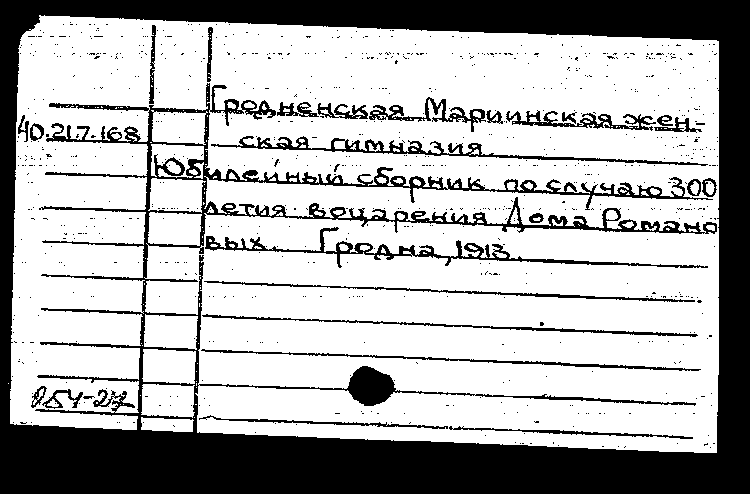 Гродненская Мариинская жен-
40.217.168 ская гимназия.
Юбилейный сборник по случаю 300
летия воцарения Дома Романо
вых. Гродна, 1913.